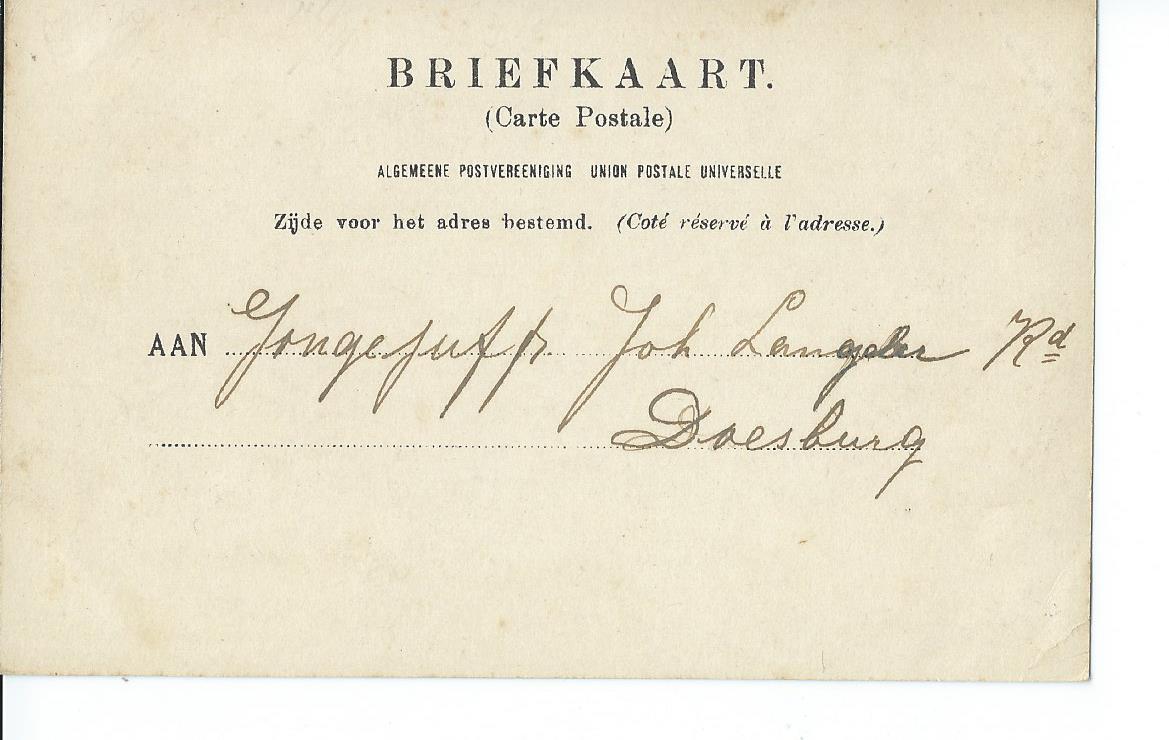 BRIEFKAART.
(Carte Postale)
ALGEMEENE POSTVEREENIGING UNION POSTALE UNIVERSELLE
Zijde voor het adres bestemd. (Coté réservé à l'adresse.)
AAN Jongejuffr Joh
Doesburg